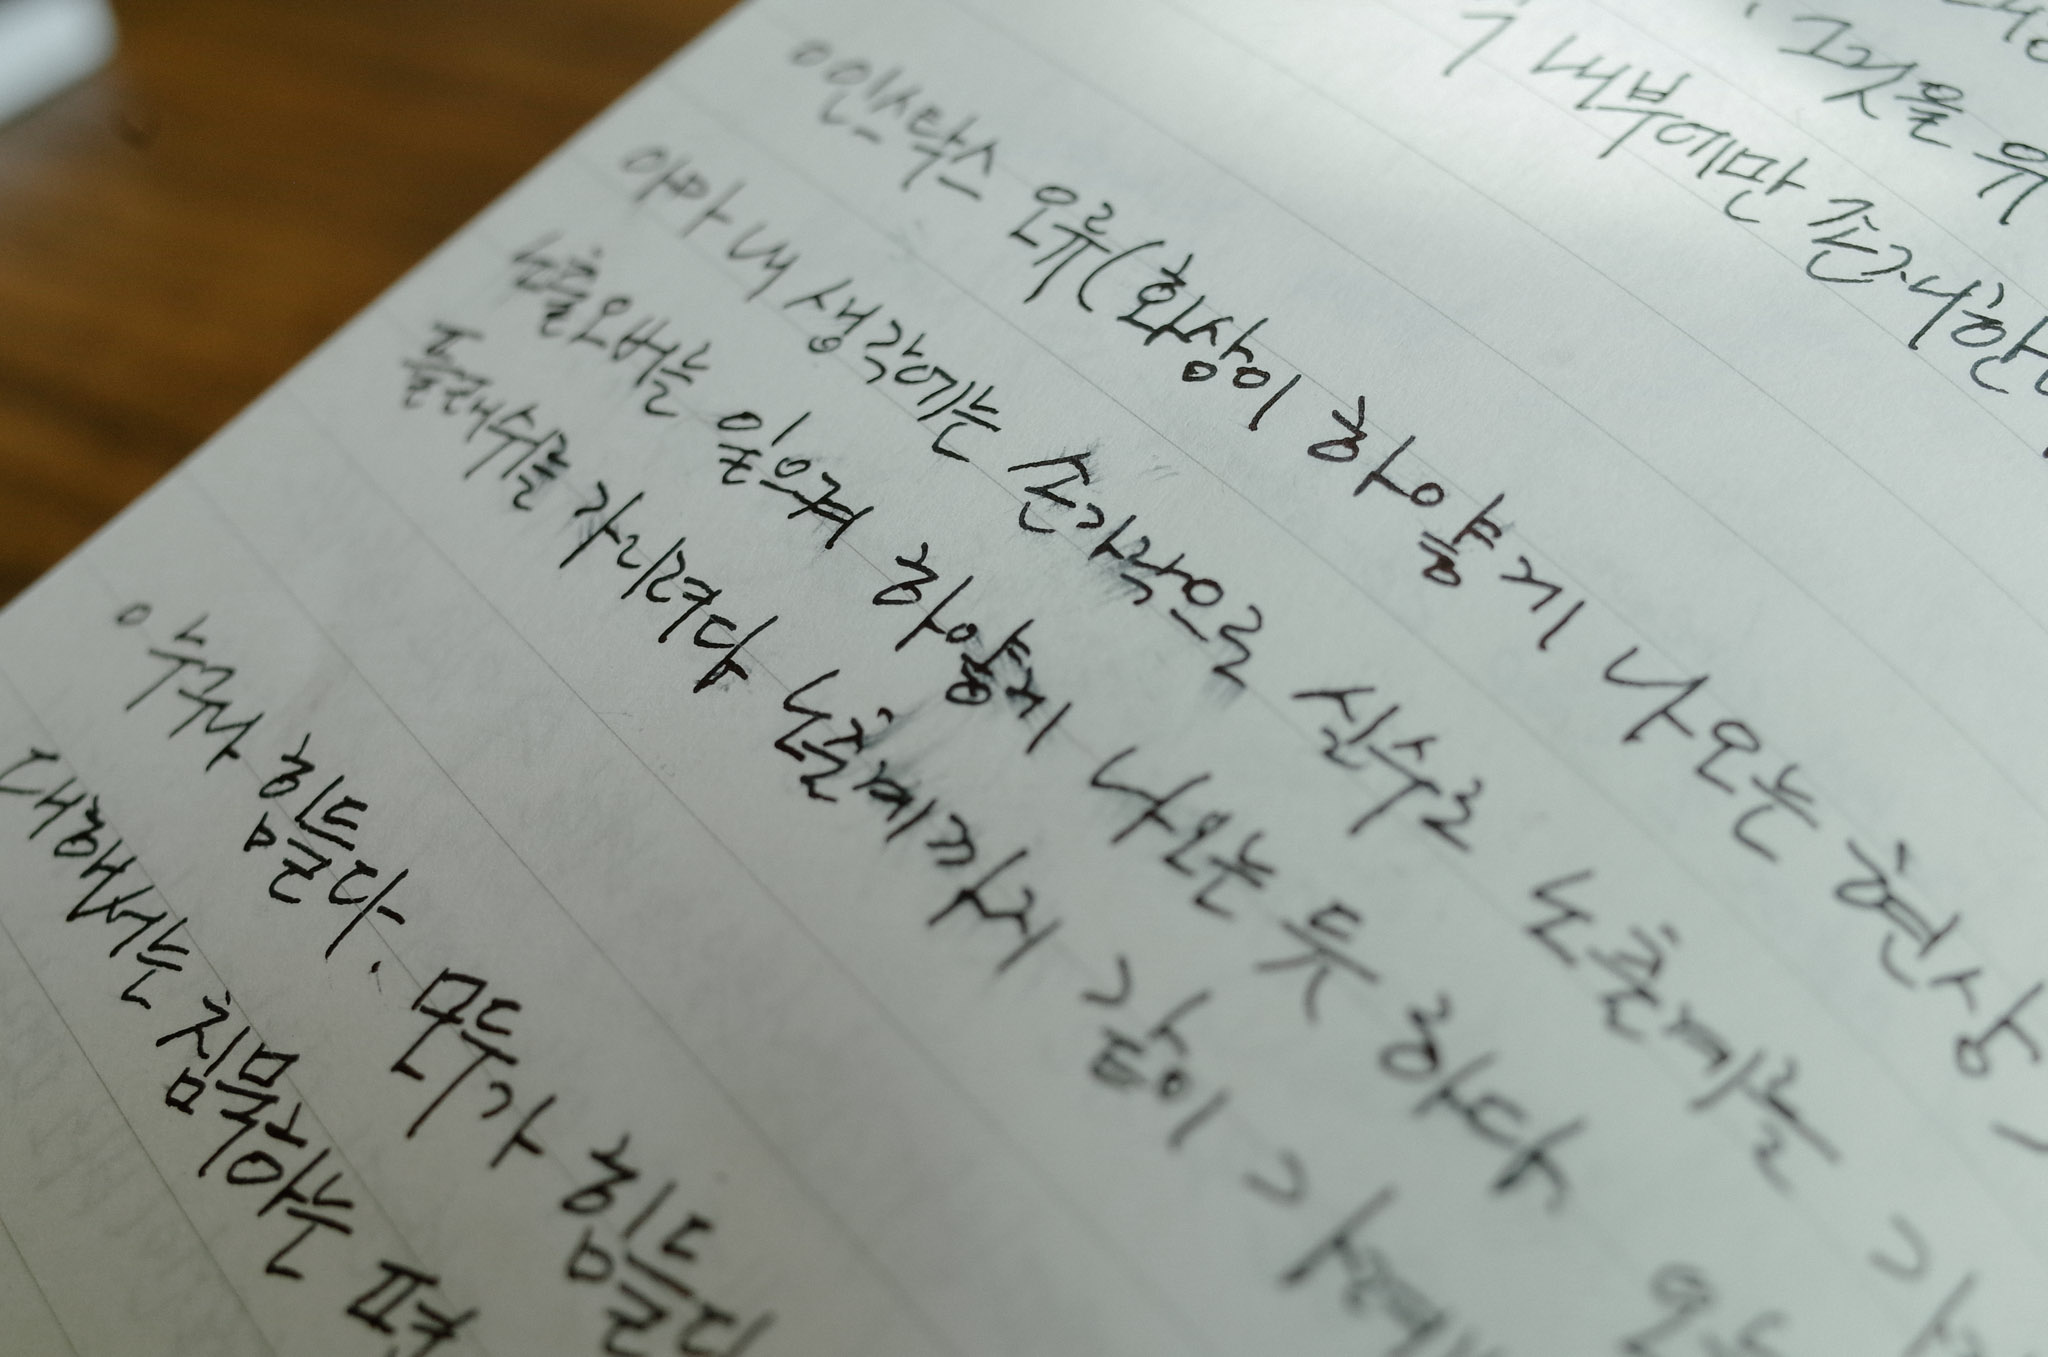 그것을 유
내부에만 존재한
○ 인스탁스 오류(화상이 하얗게 나오는 현상
아마 내 생각에는 손가락으로 실수로 노출계를
노출오버를 일으켜 하얗게 나오는 듯 하다
플래쉬를 가리려다 노출계까지 같이
○ 누구나 힘들다. 모두가 힘들다
대해서는 침묵하는 편